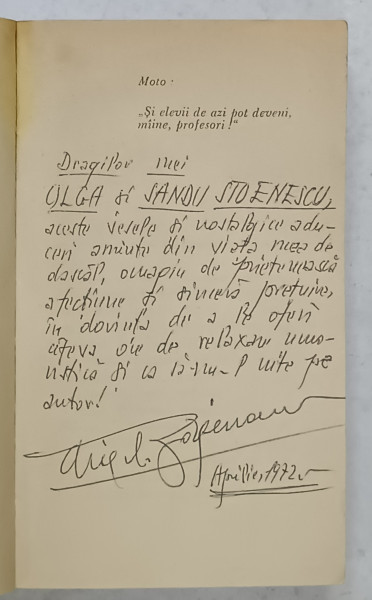 Moto :
„Și elevii de azi pot deveni,
mîine, profesori !“
Dragilor mei
OLGA și SANDU STOENESCU,
aceste vesele și nostalgice adu-
ceri aminte din viața mea de
dascăl, omagiu de prietenească
afecțiune și sinceră prețuire,
în dorința de a le oferi
cîteva ore de relaxare umo-
ristică și ca să-l uite pe
autor!
Aprilie, 1972